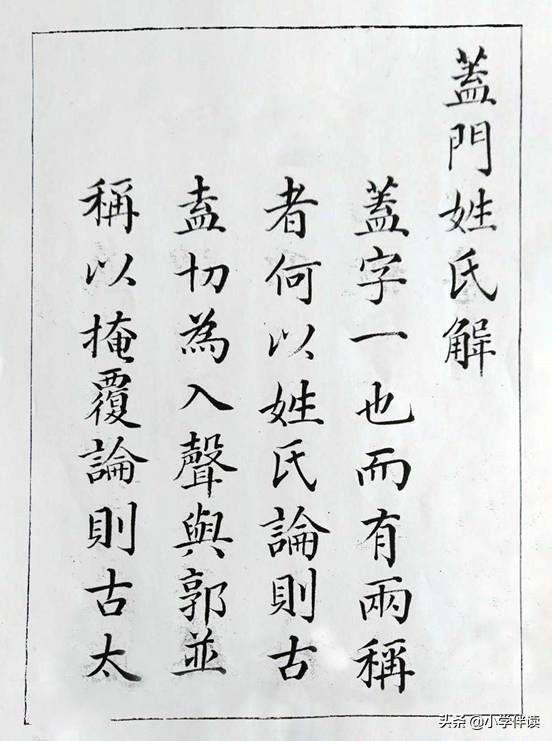 蓋門姓氏解
蓋字一也而有兩稱
者何以姓氏論則古
盍切為入聲與郭並
稱以掩覆論則古太
头条 @小学伴读